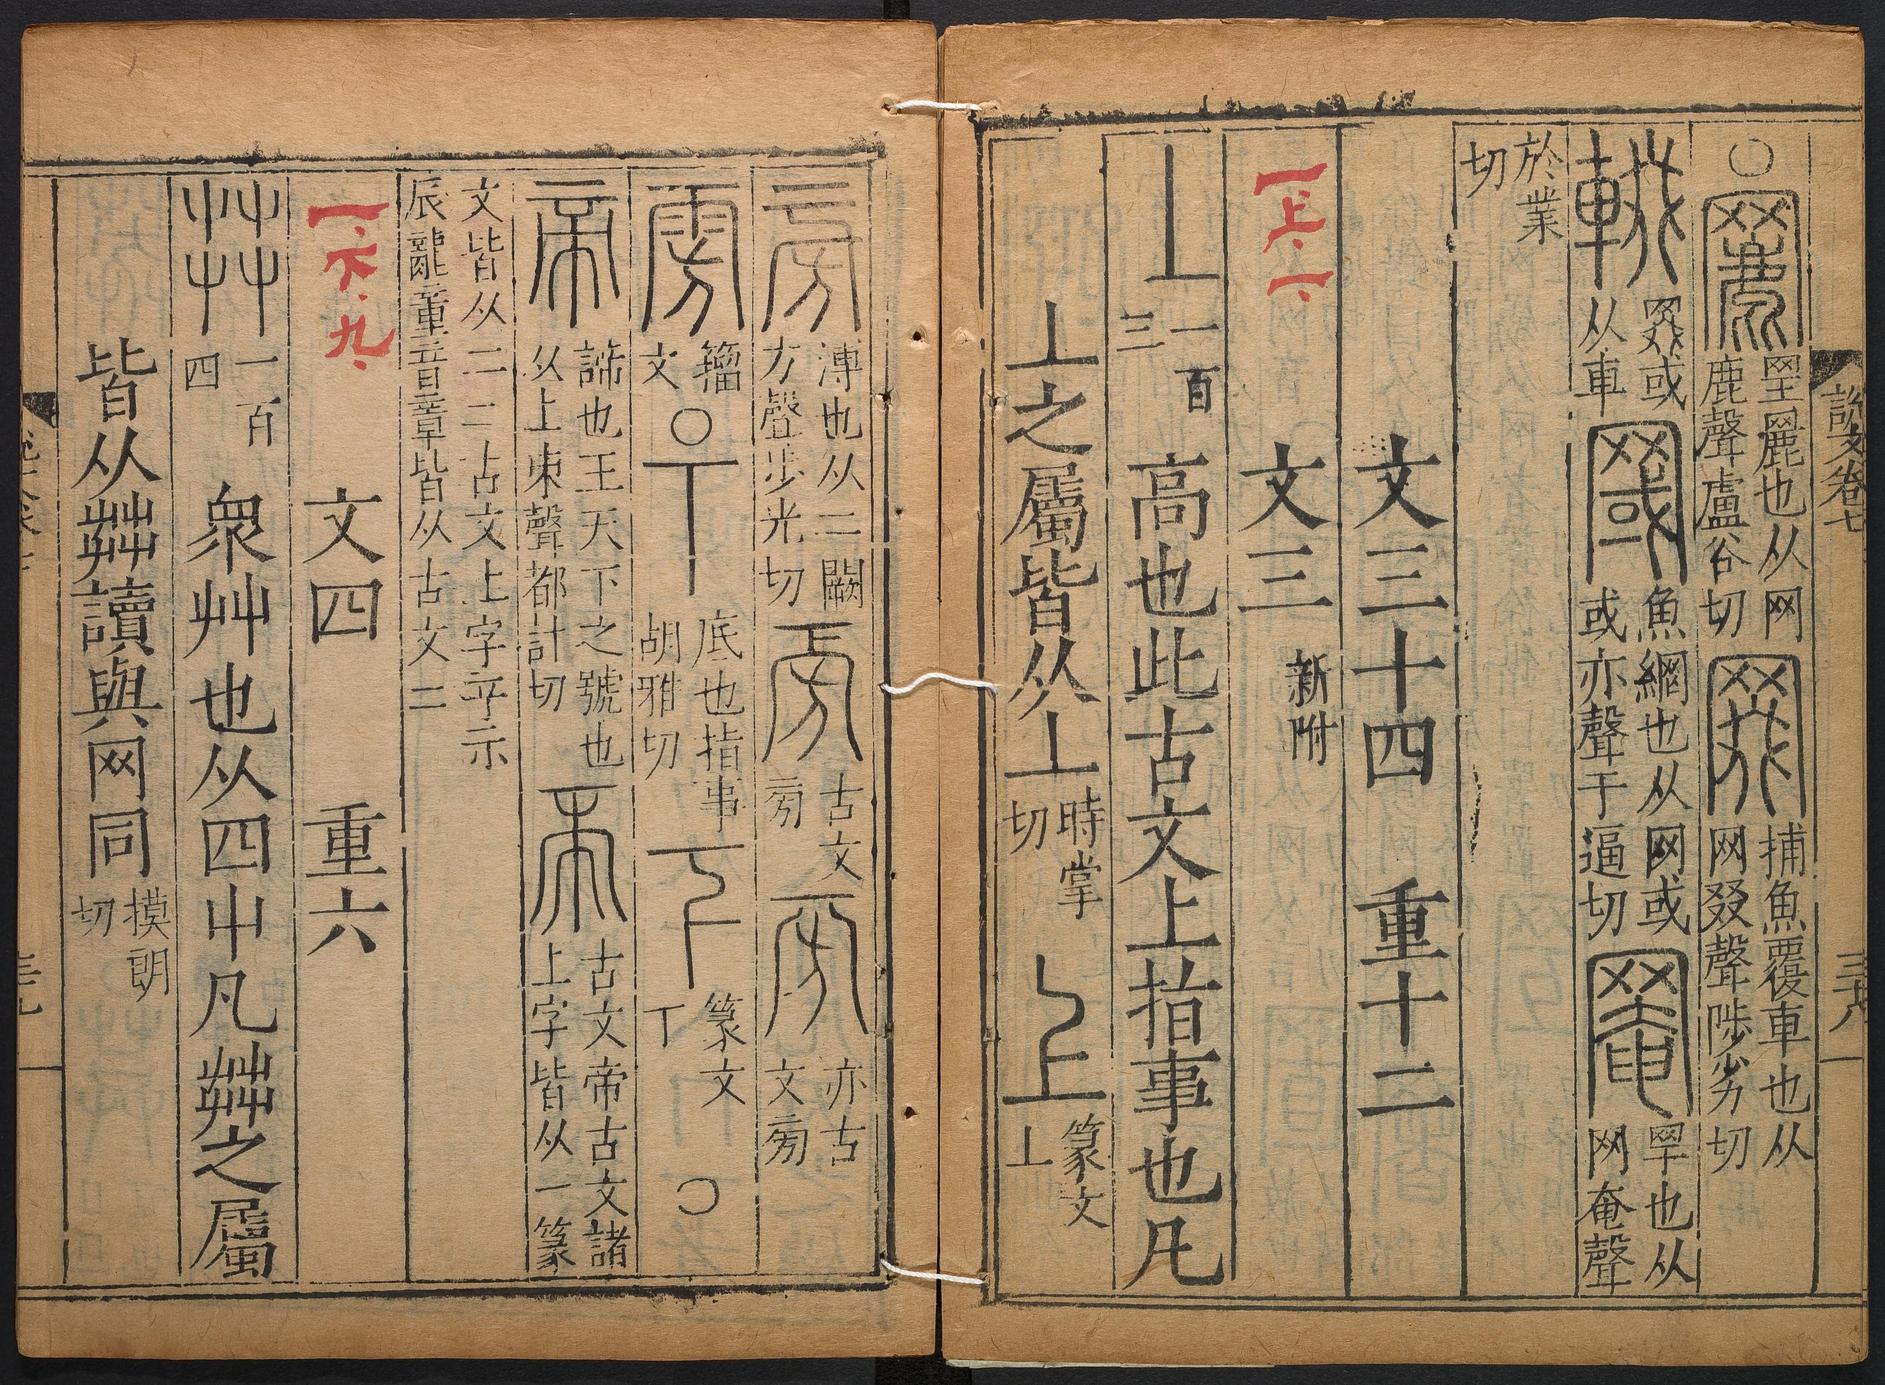 說文卷七 三十八
○ 罜麗也从网鹿聲盧谷切 罬 捕魚覆車也从网叕聲陟劣切
輟 罬或从車 罭 魚網也从网或或亦聲于逼切 罨 罕也从网奄聲
於業切
文三十四 重十二
一上、一、 文三 新附
丄 一百三 高也此古文上指事也凡
丄之屬皆从丄 時掌切 上 篆文丄
旁 溥也从二闕方聲步光切 古文㫄 亦古文㫄
雱 籀文 ○ 丅 底也指事胡雅切 下 篆文丅 ○
帝 諦也王天下之號也从上朿聲都計切 古文帝古文諸上字皆从一篆
文皆从二二古文上字平示辰龍童音章皆从古文二
一、下、九、 文四 重六
茻 一百四 眾艸也从四屮凡茻之屬
皆从茻讀與网同 摸朗切